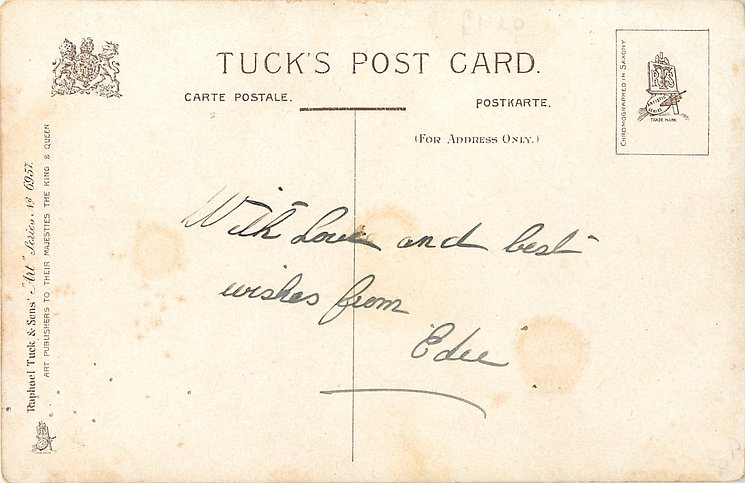 TUCK'S POST CARD.
CARTE POSTALE.
POSTKARTE.
(FOR ADDRESS ONLY.)
CHROMOGRAPHED IN SAXONY
TRADE MARK.
Raphael Tuck & Sons' "Art" Series No 6957.
ART PUBLISHERS TO THEIR MAJESTIES THE KING & QUEEN
With Love and best
wishes from
'Edie'